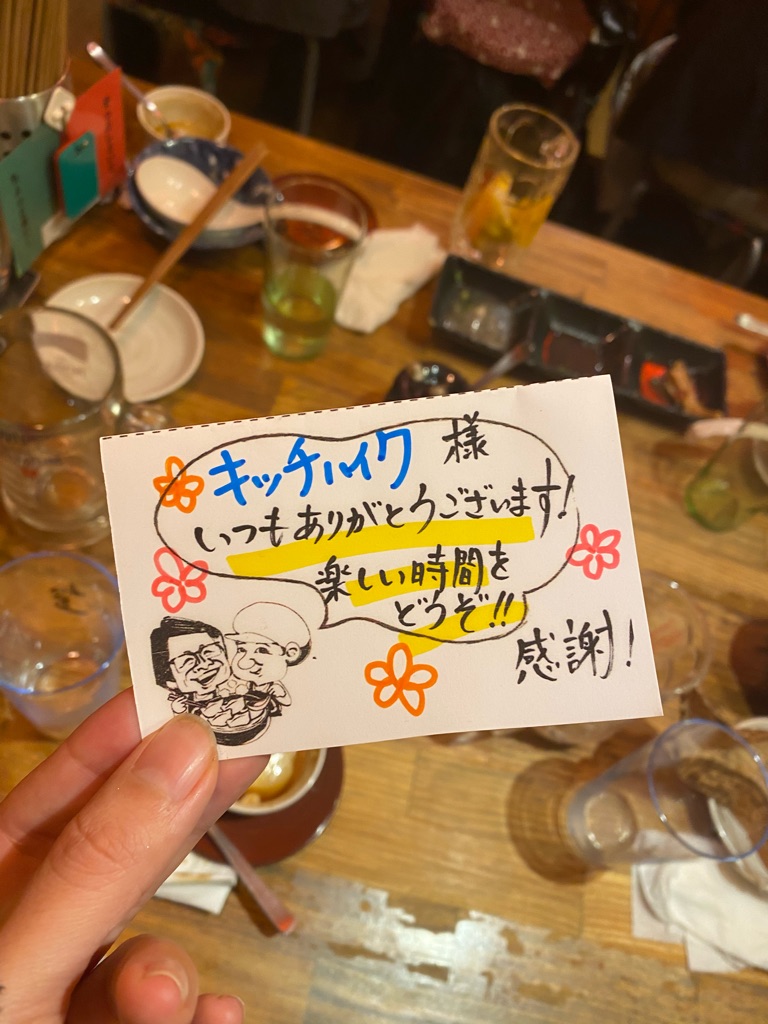 キッチハイク 様
いつもありがとうございます!
楽しい時間を
どうぞ!!
感謝!